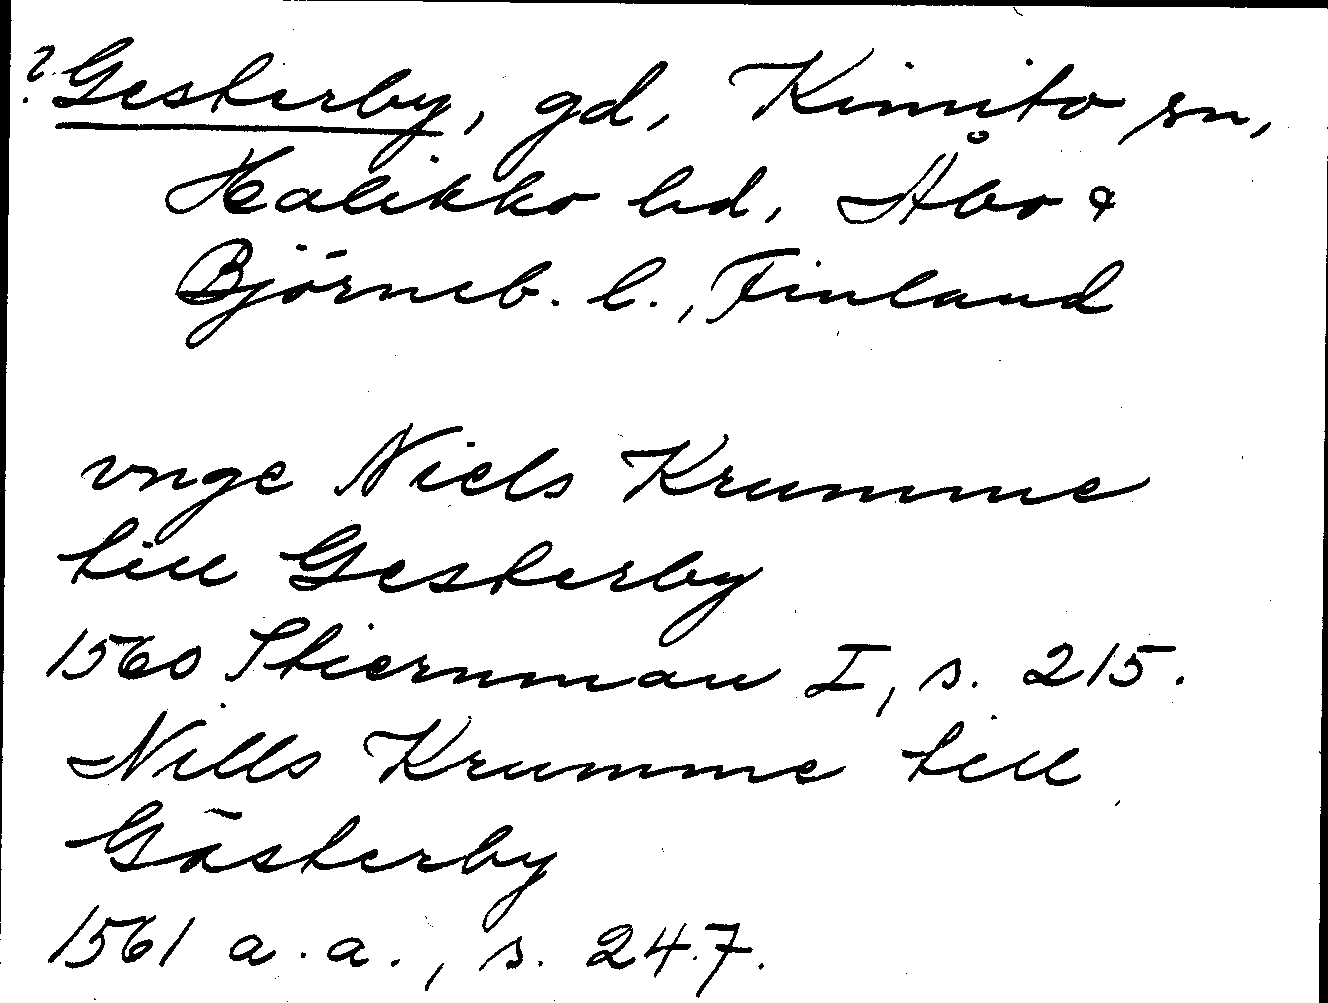 ? Gesterby, gd, Kimito sn,
Halikko hd, Åbo &
Björneb. l., Finland
vnge Niels Krumme
till Gesterby
1560 Stiernman I, s. 215.
Nills Krumme till
Gästerby
1561 a.a., s. 247.